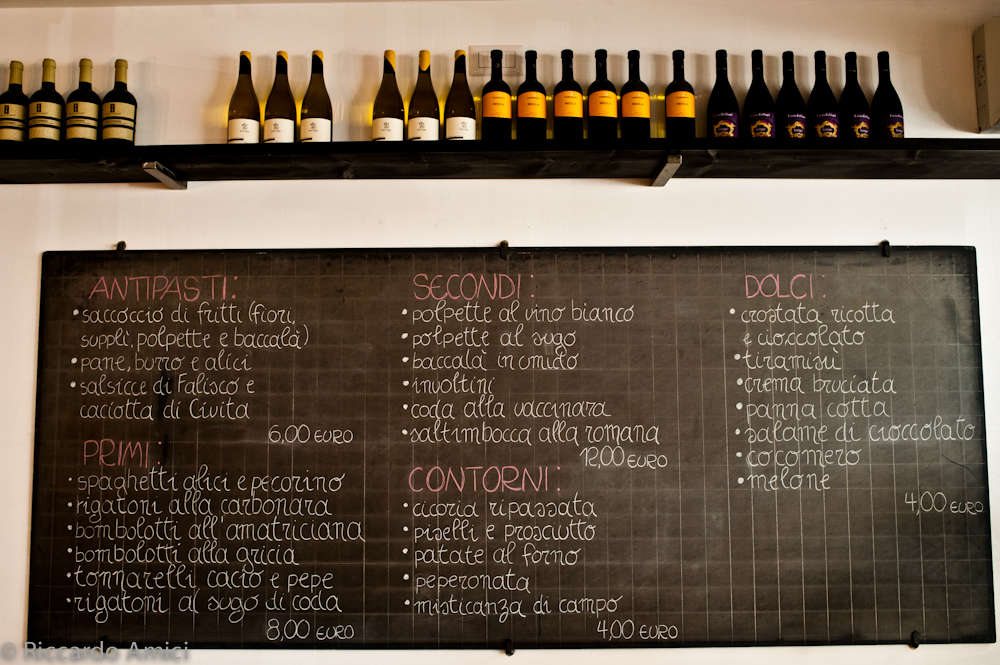 ANTIPASTI:
• saccoccio di fritti (fiori,
supplì, polpette e baccalà)
• pane, burro e alici
• salsicce di Falisco e
caciotta di Civita
6,00 EURO
PRIMI:
• spaghetti alici e pecorino
• rigatoni alla carbonara
• bombolotti all'amatriciana
• bombolotti alla gricia
• tonnarelli cacio e pepe
• rigatoni al sugo di coda
8,00 EURO
SECONDI:
• polpette al vino bianco
• polpette al sugo
• baccalà in umido
• involtini
• coda alla vaccinara
• saltimbocca alla romana
12,00 EURO
CONTORNI:
• cicoria ripassata
• piselli e prosciutto
• patate al forno
• peperonata
• misticanza di campo
4,00 EURO
DOLCI:
• crostata ricotta
e cioccolato
• tiramisù
• crema bruciata
• panna cotta
• salame di cioccolato
• cocomero
• melone
4,00 EURO
© Riccardo Amici